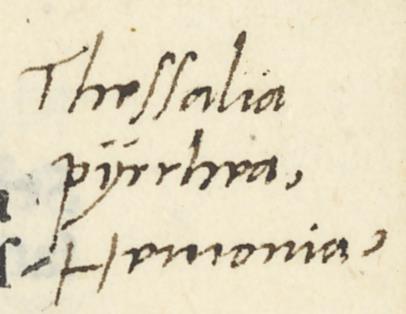 Thessalia
pÿrrhea,
Hæmonia,